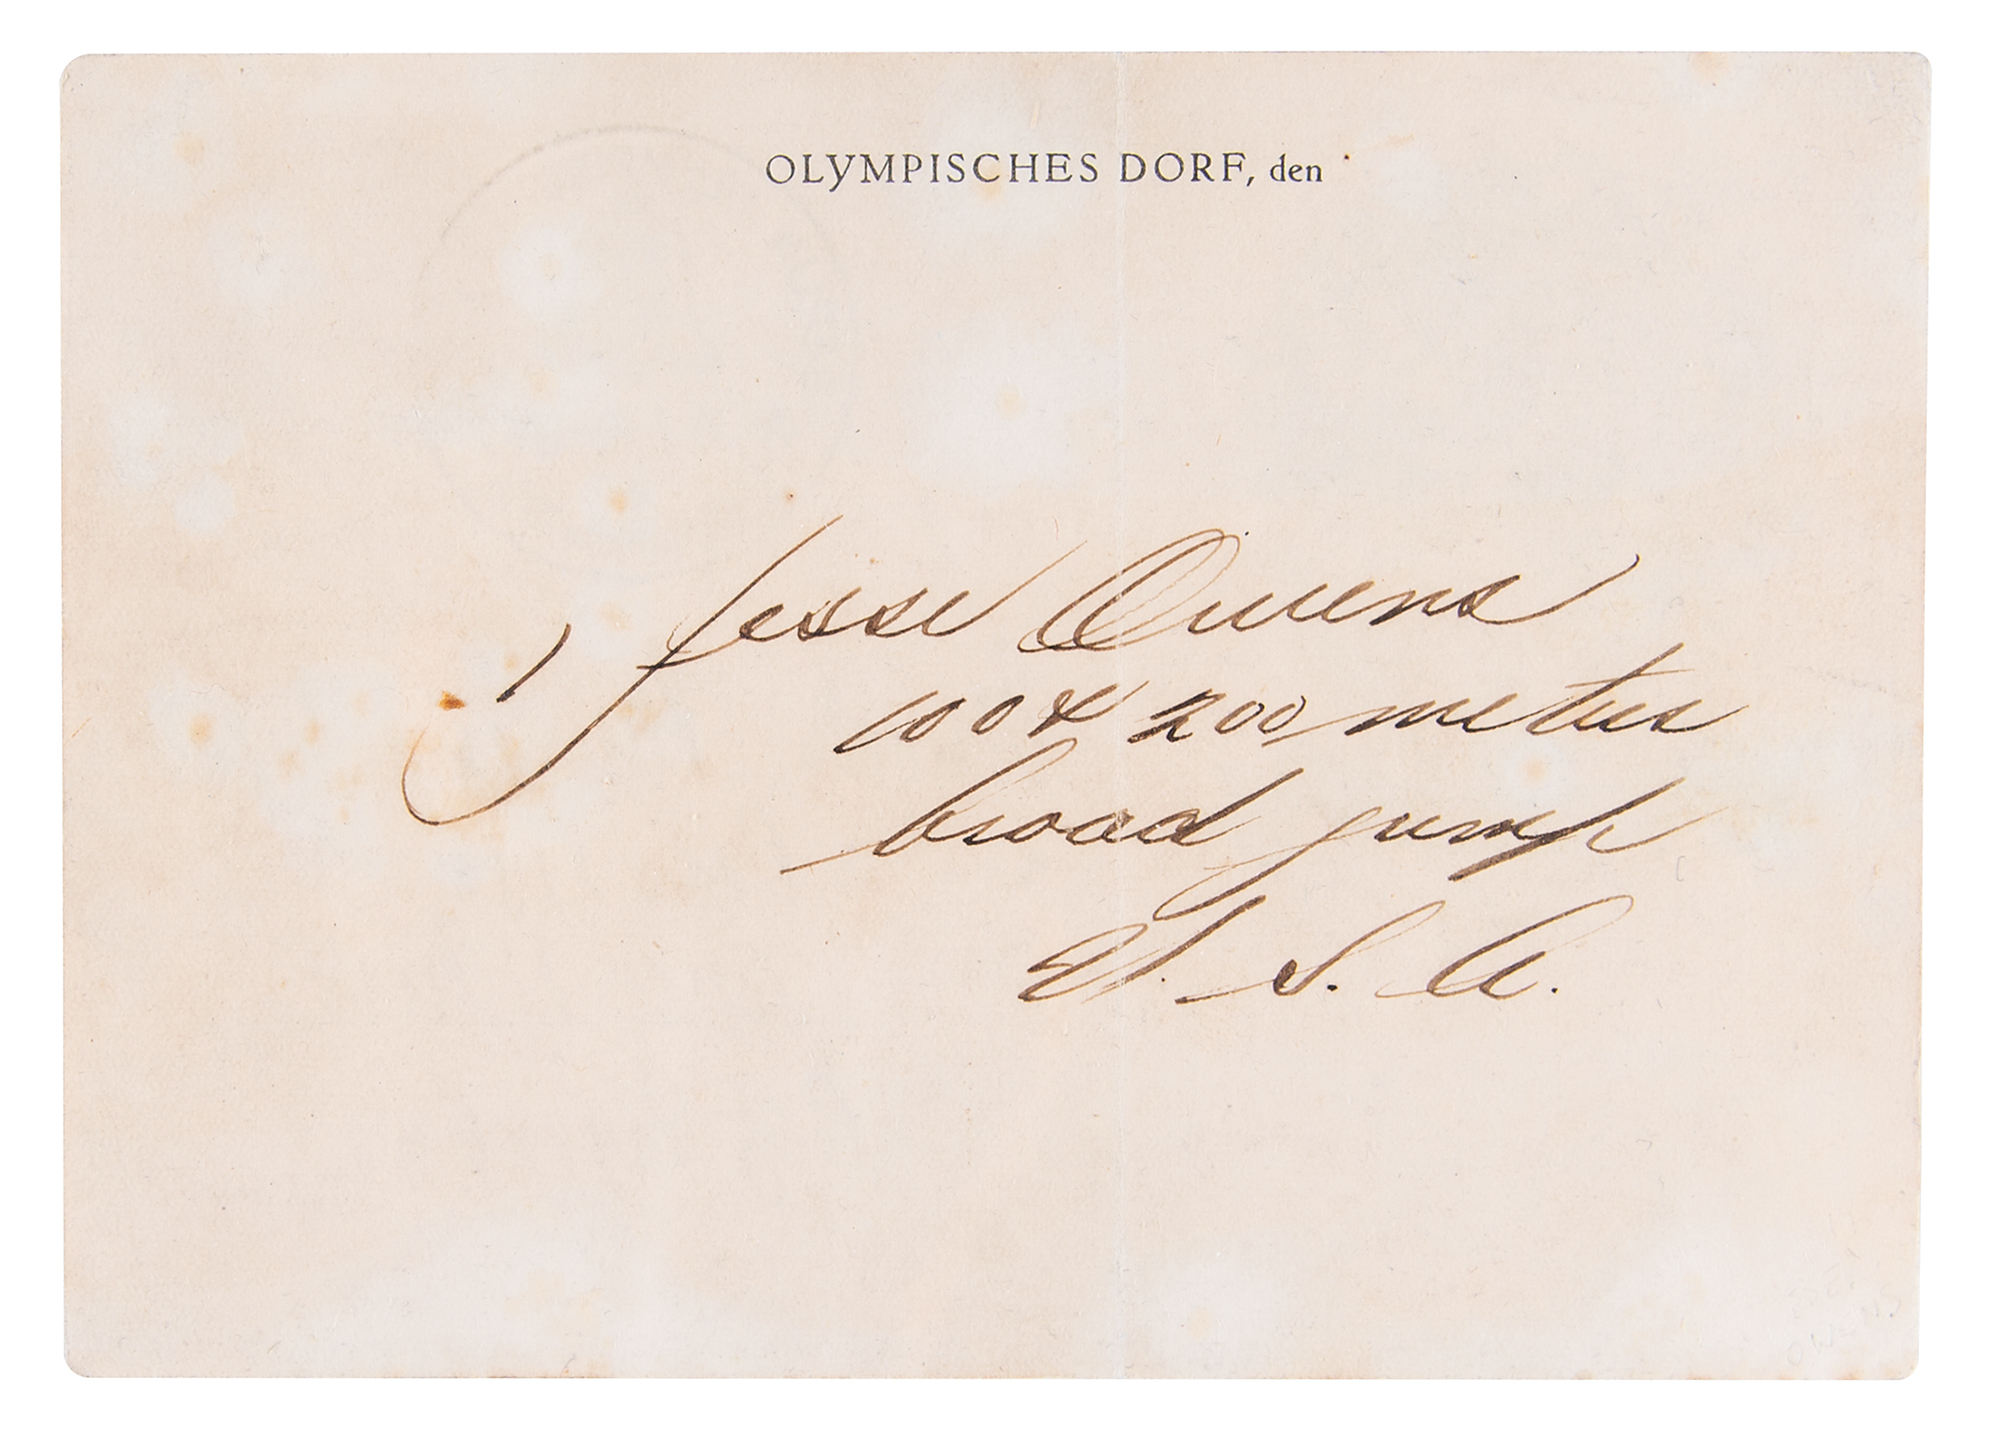 OLYMPISCHES DORF, den
Jesse Owens
100 & 200 meters
broad jump
U. S. A.